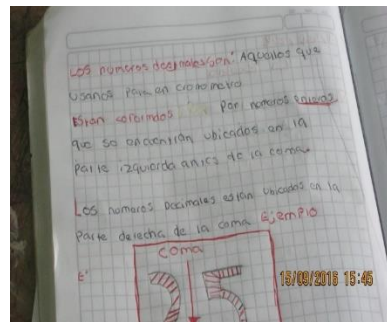 Los numeros decimales son: Aquellos que
usamos para un cronometro
Estan formados Por numeros enteros
que se encuentran ubicados en la
parte izquierda antes de la coma.
Los numeros Decimales estan ubicados en la
Parte derecha de la coma Ejemplo
coma
E'
25
15/09/2016 15:45